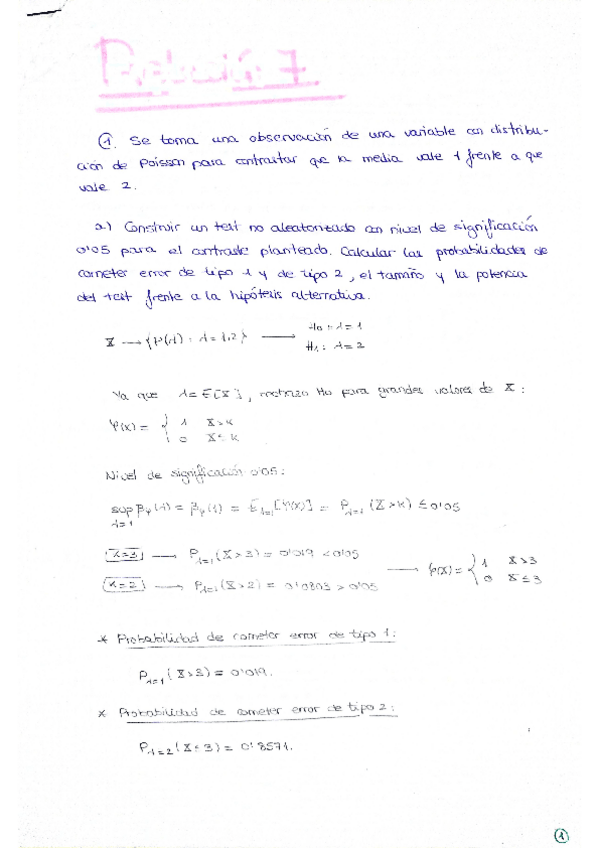 Relación 7
① Se toma una observación de una variable con distribu-
ción de Poisson para contrastar que la media vale 1 frente a que
vale 2.
a) Construir un test no aleatorizado con nivel de significación
0'05 para el contraste planteado. Calcular las probabilidades de
cometer error de tipo 1 y de tipo 2, el tamaño y la potencia
del test frente a la hipótesis alternativa.
X → {P(λ) : λ = 1,2} → H₀ : λ = 1
H₁ : λ = 2
Ya que λ = E[X], rechazo H₀ para grandes valores de X :
φ(x) = { 1 X > K
0 X ≤ K
Nivel de significación 0'05 :
sup βφ(λ) = βφ(1) = E λ=1 [φ(X)] = P λ=1 (X > K) ≤ 0'05
λ=1
K=3 → P λ=1 (X > 3) = 0'019 < 0'05
→ φ(X) = { 1 X > 3
0 X ≤ 3
K=2 → P λ=1 (X > 2) = 0'0803 > 0'05
* Probabilidad de cometer error de tipo 1 :
P λ=1 (X > 3) = 0'019.
* Probabilidad de cometer error de tipo 2 :
P λ=2 (X ≤ 3) = 0'8571.
1